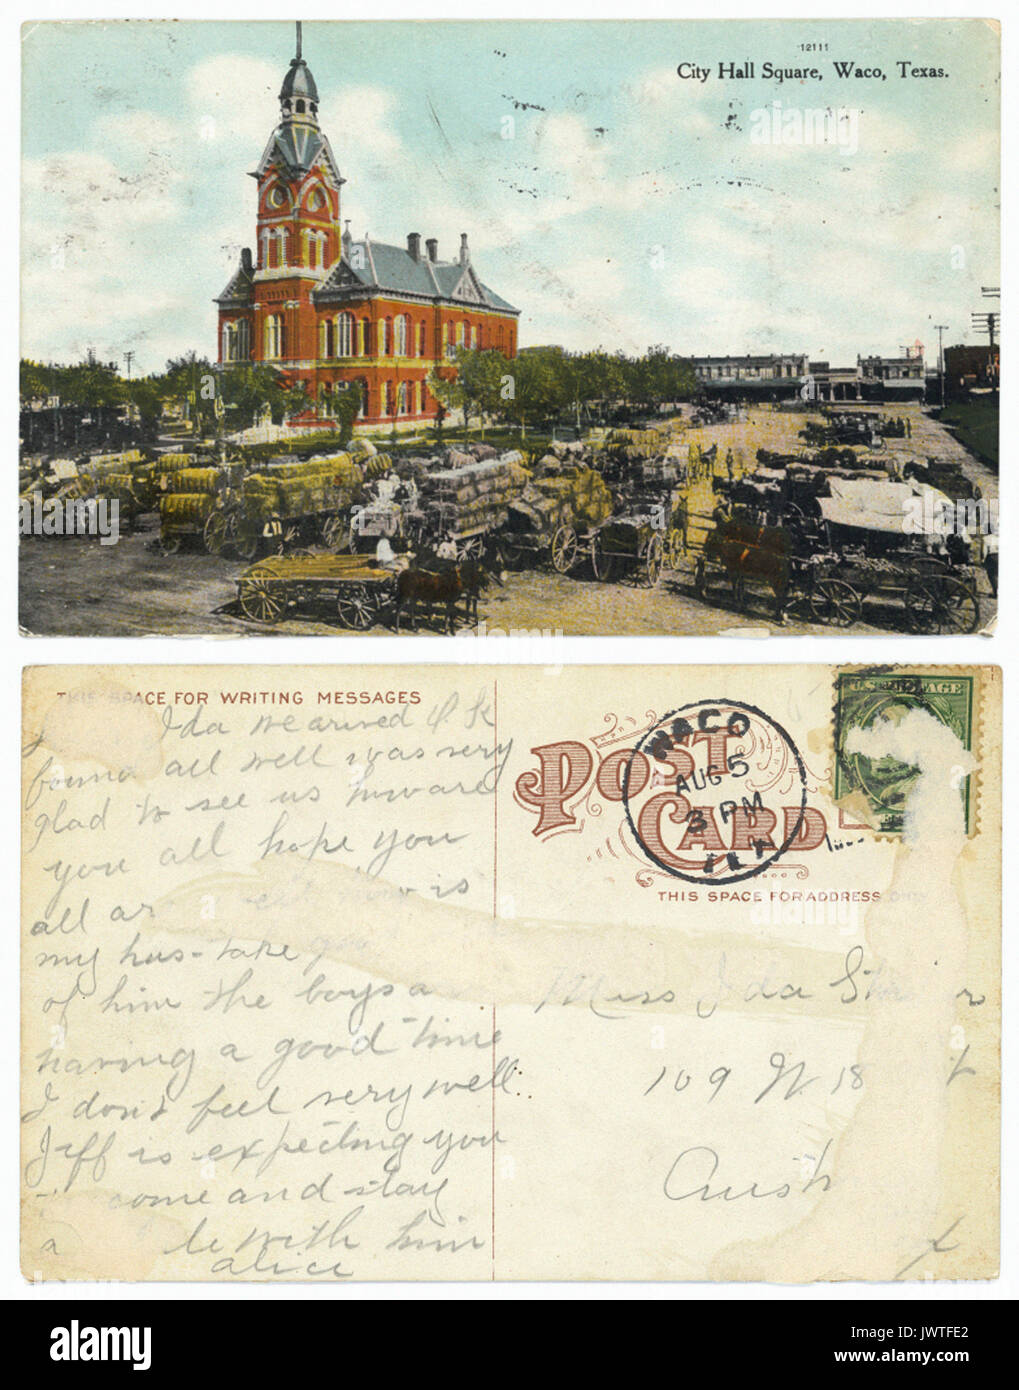 12111
City Hall Square, Waco, Texas.
THIS SPACE FOR WRITING MESSAGES
Ida we arived O.K
found all well was very
glad to see us
you all hope you
all ar is
my hus- take
of him the boys a
having a good time
I dont feel very well
Jeff is expecting you
come and stay
a with him
alice
WACO
AUG 5
3 PM
TEX
U.S. POSTAGE
POST
CARD
THIS SPACE FOR ADDRESS ONLY
Miss Ida
109 W. 18 t
Aust
alamy
Image ID: JWTFE2
www.alamy.com